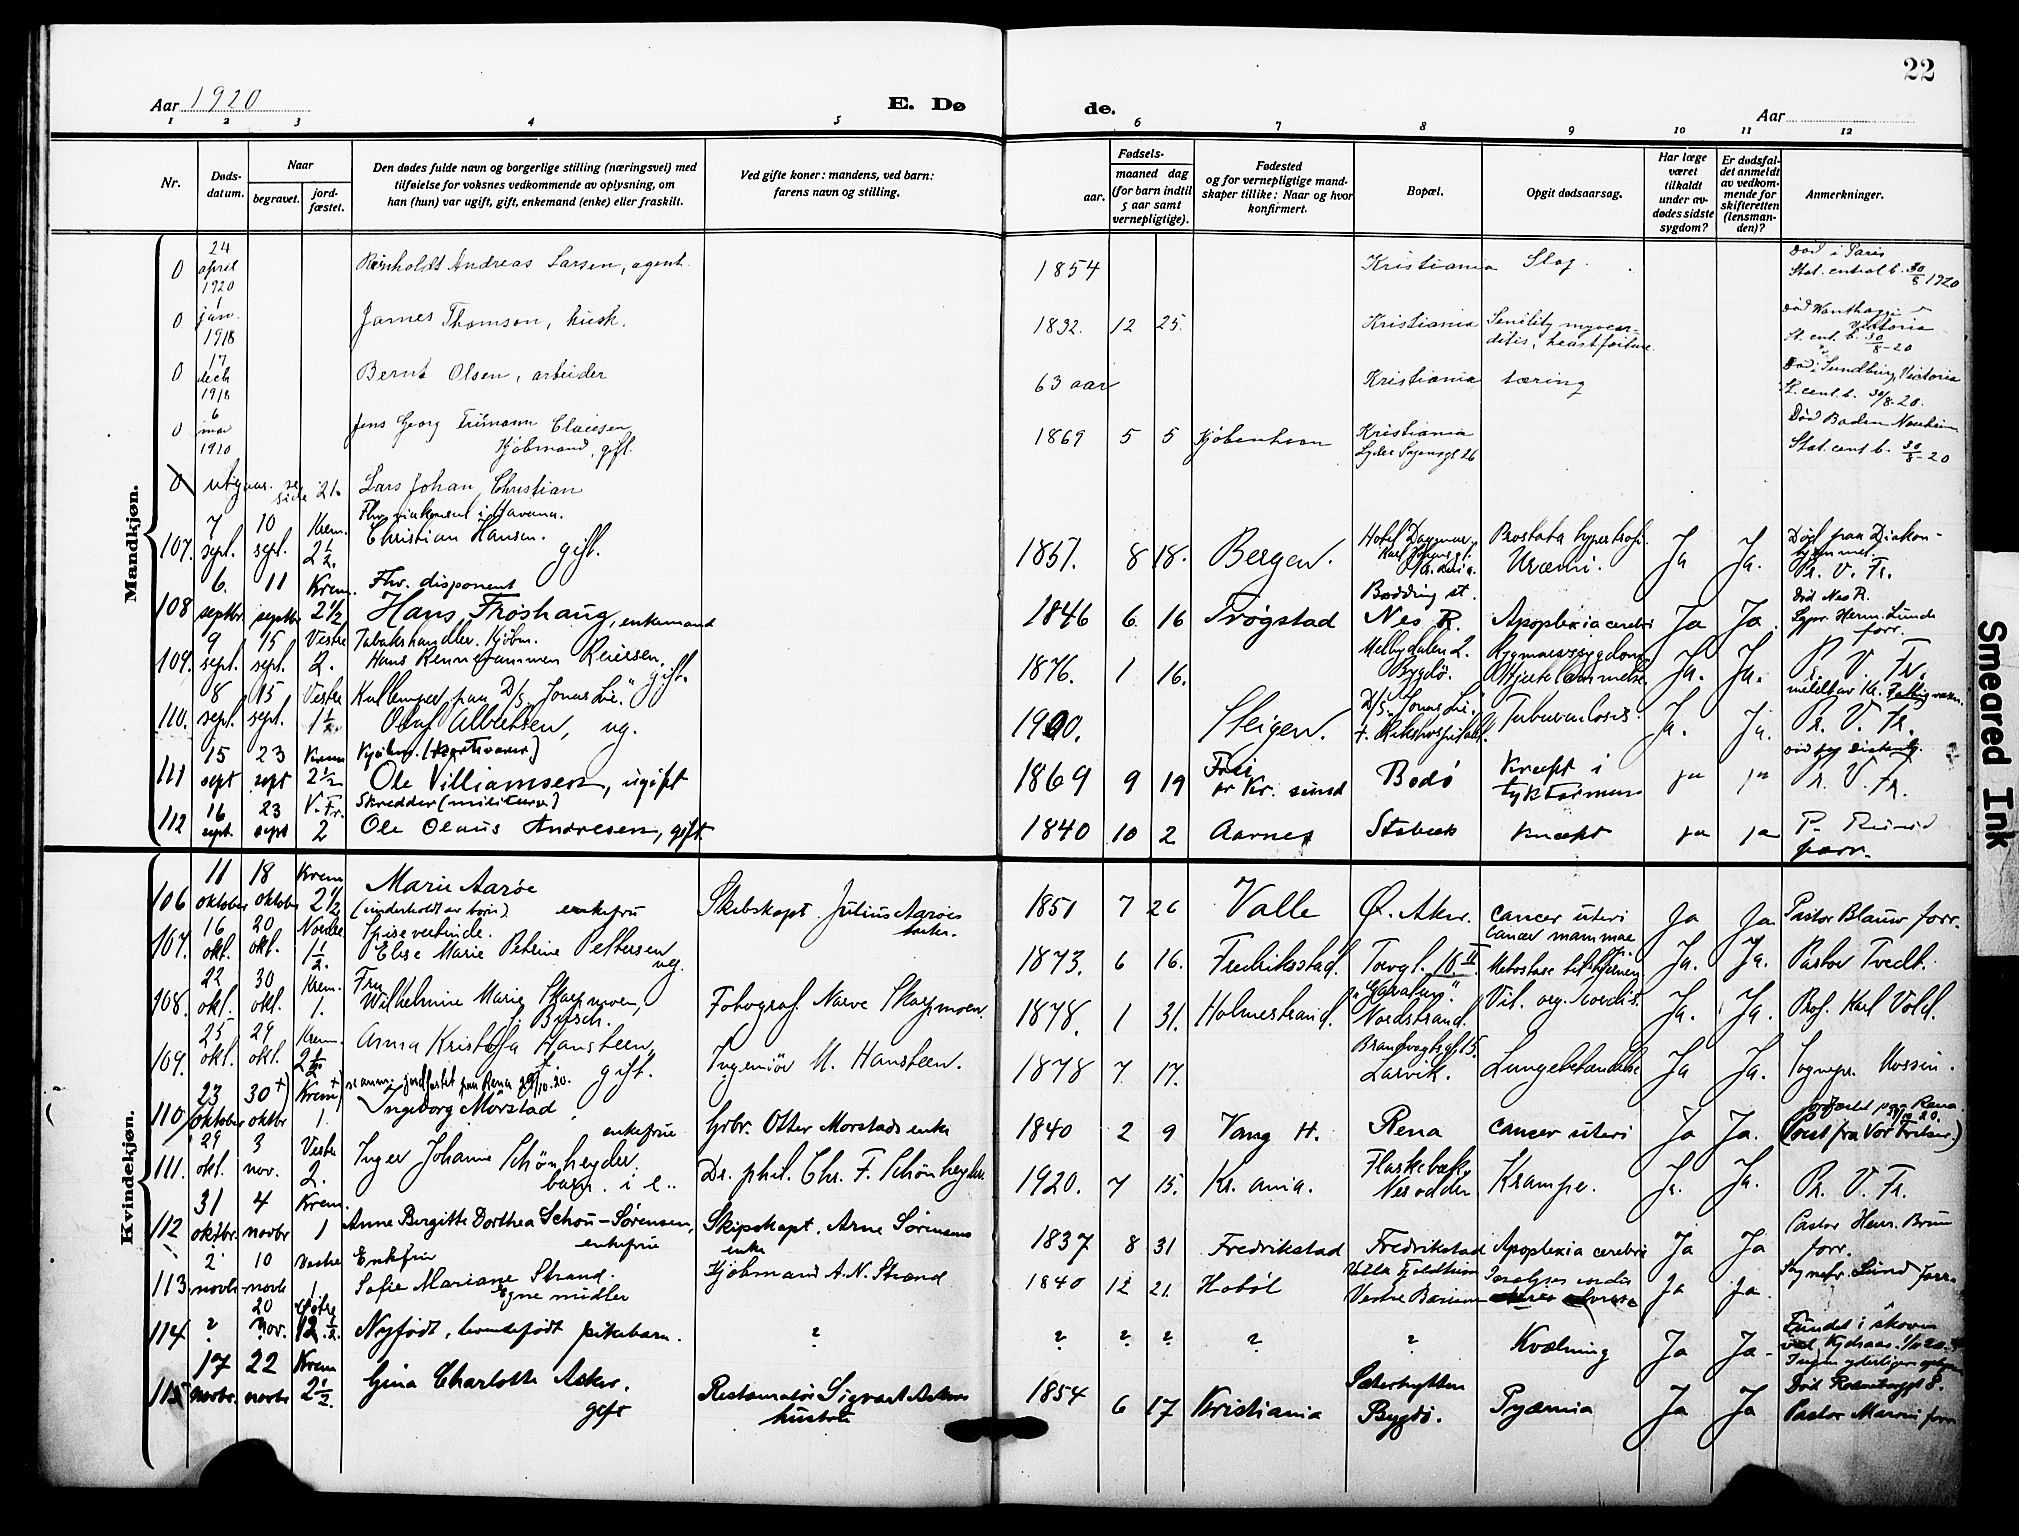 22
Aar 1920
E. Dø
de.
Aar
1 2 3 4 5 6 7 8 9 10 11 12
Nr.
Døds-
datum.
Naar
begravet.
jord-
fæstet.
Den dødes fulde navn og borgerlige stilling (næringsvei) med
tilføielse for voksnes vedkommende av oplysning, om
han (hun) var ugift, gift, enkemand (enke) eller fraskilt.
Ved gifte koner: mandens, ved barn:
farens navn og stilling.
Fødsels-
aar.
maaned dag
(for barn indtil
5 aar samt
vernepligtige).
Fødested
og for vernepligtige mand-
skaper tillike: Naar og hvor
konfirmert.
Bopæl.
Opgit dødsaarsag.
Har læge
været
tilkaldt
under av-
dødes sidste
sygdom?
Er dødsfal-
det anmeldt
av vedkom-
mende for
skifteretten
(lensman-
den)?
Anmerkninger.
Mandkjøn.
0 24 april 1920 Reinholdt Andreas Larsen, agent. 1854 Kristiania Slag. Død i Paris
Stat. central b. 30/8 1920
0 1 jan. 1918 James Thomson, husk. 1832. 12 25. Kristiania Senility myocar-
ditis, heartfailure
Victoria
St. cent. b. 30/8-20
0 17 dech 1918 Bernt Olsen, arbeider 63 aar Kristiania tæring
Victoria
St. cent. b. 30/8-20.
0 6 mar 1920 Jens Georg Clausen
Kjøbmand, gift. 1869 5 5 Kjøbenhavn Kristiania
Lyder Sagensgt 26
Død Baden Nauheim
Stat. cent b. 30/8-20
0 utgaar. se side 21. Lars Johan Christian
107. 7 sept. 10 sept. Krem. 2 1/2. Christian Hansen. gift. 1857. 8 18. Bergen. Hotel Dagmar,
Karl Johans gt.
Prostata hypertrofi.
Uræmi. Ja Ja. Død paa Diakon-
hjemmet.
R. V. Fr.
108 6. septbr. 11 septbr Krem. 2 1/2 Fhv. disponent
Hans Frøshaug, enkemand 1846 6 16 Trøgstad Nes R. Apoplexia cerebri Ja Ja. død Nes R.
Sgpr. Herm. Lunde
forr.
109. 9 sept. 15 sept. Vestre 2. Tabakshandler. Kjøbm.
Hans Reiersen, gift. 1876. 1 16. Melbydalen 2.
Bygdø. Rygmarvssygdom
Hjertelammelse. Ja. Ja. R. V. Fr.
110. 8 sept. 15 sept. Vestre 1 1/2. Kullemper paa D/S „Jonas Lie."
Olaf Albertsen, ug. 1900. Steigen. D/S „Jonas Lie."
f. Rikshospitalet. Tuberculosis. Ja. Ja. R. V. Fr.
111 15 sept 23 sept Krem 2 1/2 Ole Villiamsen, ugift 1869 9 19 Frei
pr Kr. sund Bodø Kræft i
tyktarmen ja ja R. V. Fr.
112 16 sept. 23 sept V. Fr. 2 Skredder (militær)
Ole Olaus Andresen, gift 1840 10 2 Aarnes Stabæk Kræft ja ja
forr.
Kvindekjøn.
106 11 oktober 18 oktober Krem 2 1/2 Marie Aarøe
(underholdt av børn) enkefru Skibskapt. Julius Aarøes
enke. 1851 7 26 Valle Ø. Aker. Cancer uteri Ja Ja Pastor Blauw forr.
107. 16 okt. 20 okt. Nordre 1 1/2. Spisevertinde.
Else Marie Petrine Pettersen ug. 1873. 6 16. Fredriksstad. Torvgt. 10 II. Cancer mammae
Metastase til hjernen Ja. Ja. Pastor Tvedt.
108. 22 okt. 30 okt. Krem. 1. Fru
Wilhelmine Marie Skarpmoen,
f. Bytsch. Fotograf Narve Skarpmoen. 1878. 1 31. Holmestrand. Nordstrand. Vit. org. cordis. Ja. Ja. Prof. Karl Vold.
109. 25 okt. 29 okt. Krem. 2 1/2 Anna Kristofa Hansteen, gift. Ingeniør M. Hansteen. 1878 7 17. Brandvagtsgt 15.
Larvik. Lungebetændelse Ja Ja. Sognepr. Mossin.
110 23 oktober 30+) oktbr Krem+) 1. +) jordfæstet paa Rena 29/10.20.
Ingeborg Mørstad, enkefrue Grbr. Otter Morstads enke 1840 2 9 Vang H. Rena Cancer uteri Ja Ja. Jordfæstet paa Rena
29/10 20.
(Prest fra Vor Frelser.)
111. 29 okt. 3 nov. Vestre 2. Inger Johanne Schönheyder.
barn. i e.. Dr. phil. Chr. F. Schönheyder. 1920. 7 15. Kr. ania. Flaskebæk,
Nesodden Krampe. Ja. Ja. R. V. Fr.
112 31 oktbr. 4 novbr Krem. 1 Anne Bergitte Dorthea Schou-Sørensen,
enkefrue Skipskapt. Arne Sørensens
enke 1837 8 31 Fredrikstad Fredrikstad Apoplexia cerebri Ja Ja Pastor Henr. Brun
forr.
113 2 novbr 10 novbr Vestre 1 Enkefru
Sofie Mariane Strand.
Egne midler Kjøbmand A. N. Strand 1840 12 21. Hobøl
Vestre Bærum Paralysis cordis Ja Ja. Sognepr. Lund forr.
114 ? 20 nov. Østre 12 1/2. Nyfødt, levendefødt pikebarn. ? ? ? ? ? ? Kvælning Ja Ja. Fundet i skoven
115 17 novbr. 22 novbr Krem 2 1/2. Gina Charlotte Asker.
gift Restauratør Sigvart Askers
hustru 1854 6 17 Kristiania Sæterhytten
Bygdø. Pyæmia Ja Ja
Pastor forr
Smeared Ink